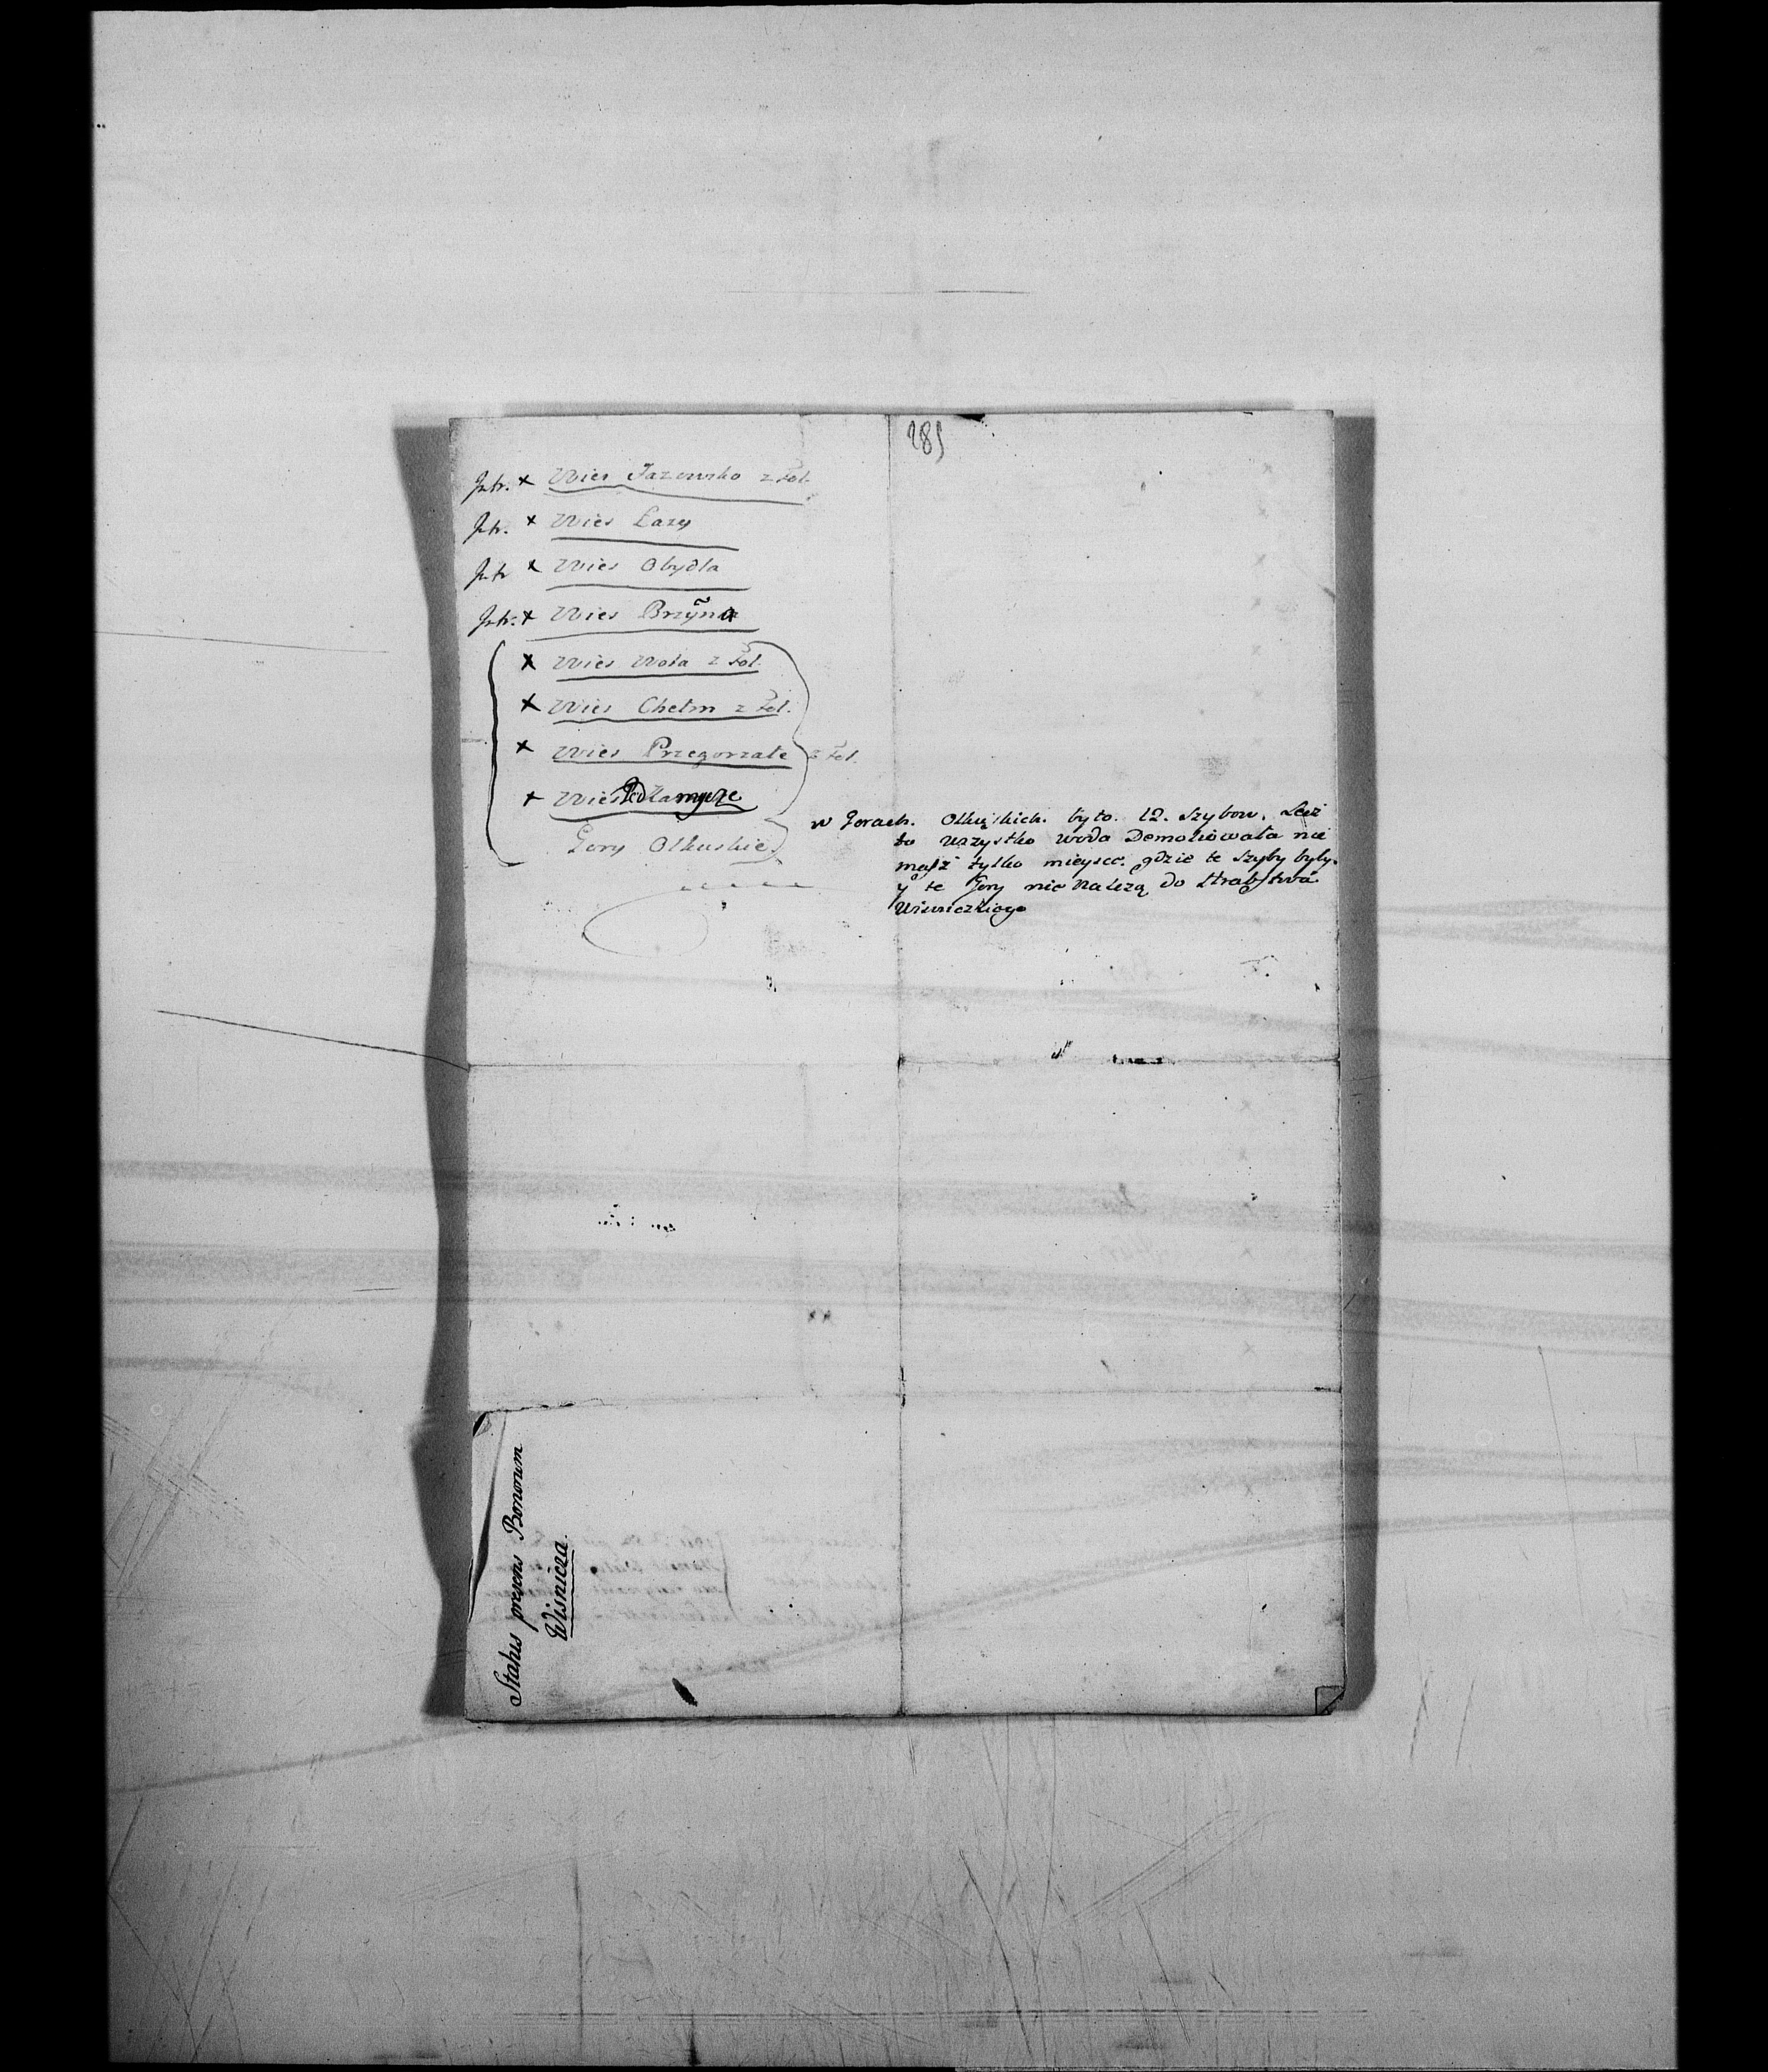 285
Jntr. x Wies Jazowsko z Fol.
Jntr. x Wies Łazy
Jntr x Wies Obydla
Jntr. x Wies Brzyna
x Wies Wola z Fol.
x Wies Chełm z Fol.
x Wies Przegorzałe z Fol.
x Wies
Gory Olkuskie
w Gorach. Olkuskich. było. 12. Szybow, Lecz
to wszystko woda Demoliowała nie
masz tylko mieysce. gdzie te Szyby były.
y te Gory nie należą do Hrabstwa
Wisnickiego
Status presens Bonorum
Wisnicza.